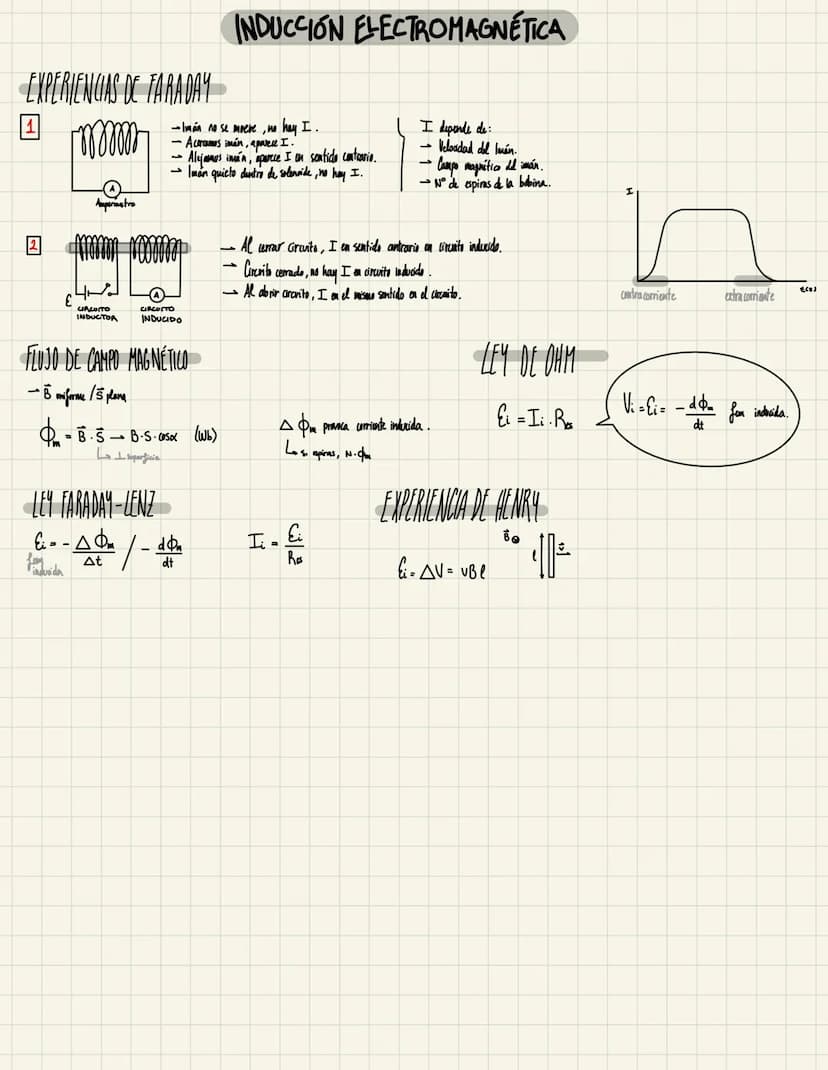 INDUCCIÓN ELECTROMAGNÉTICA
EXPERIENCIAS DE FARADAY
1
A
Amperímetro
→ Imán no se mueve, no hay I.
→ Acercamos imán, aparece I.
→ Alejamos imán, aparece I en sentido contrario.
→ Imán quieto dentro de solenoide, no hay I.
I depende de:
→ Velocidad del imán.
→ Campo magnético del imán.
→ Nº de espiras de la bobina.
2
ε
CIRCUITO
INDUCTOR
A
CIRCUITO
INDUCIDO
→ Al cerrar circuito, I en sentido contrario en circuito inducido.
→ Circuito cerrado, no hay I en circuito inducido.
→ Al abrir circuito, I en el mismo sentido en el circuito.
I
t(s)
contracorriente
extracorriente
FLUJO DE CAMPO MAGNÉTICO
→ B⃗ uniforme / S⃗ plana
Φm = B⃗ · S⃗ → B·S·cosα (Wb)
↳ ⊥ superficie
Δ Φm provoca corriente inducida.
↳ s. espiras, N·Φm
LEY DE OHM
Ei = Ii · Res
Vi = Ei = - dΦm/dt fem inducida.
LEY FARADAY-LENZ
Ei = - ΔΦm/Δt / - dΦm/dt
fem
inducida
Ii = Ei/Res
EXPERIENCIA DE HENRY
Ei = ΔV = vBl
B⃗ l v⃗